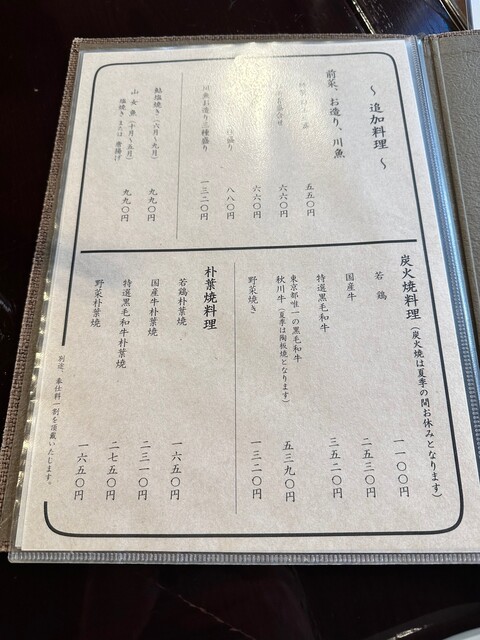 ～ 追加料理 ～
前菜、お造り、川魚
五五〇円
六六〇円
六六〇円
盛り 八八〇円
川魚お造り三種盛り 一三二〇円
鮎塩焼き（六月～九月） 九九〇円
山女魚（十月～五月）
塩焼き または 唐揚げ 九九〇円
炭火焼料理（炭火焼は夏季の間お休みとなります）
若鶏 一一〇〇円
国産牛 二五三〇円
特選黒毛和牛 三五二〇円
東京都唯一の黒毛和牛
秋川牛（夏季は陶板焼となります） 五三九〇円
野菜焼き 一三二〇円
朴葉焼料理
若鶏朴葉焼 一六五〇円
国産牛朴葉焼 二三一〇円
特選黒毛和牛朴葉焼 二七五〇円
野菜朴葉焼 一六五〇円
別途、奉仕料一割を頂戴いたします。